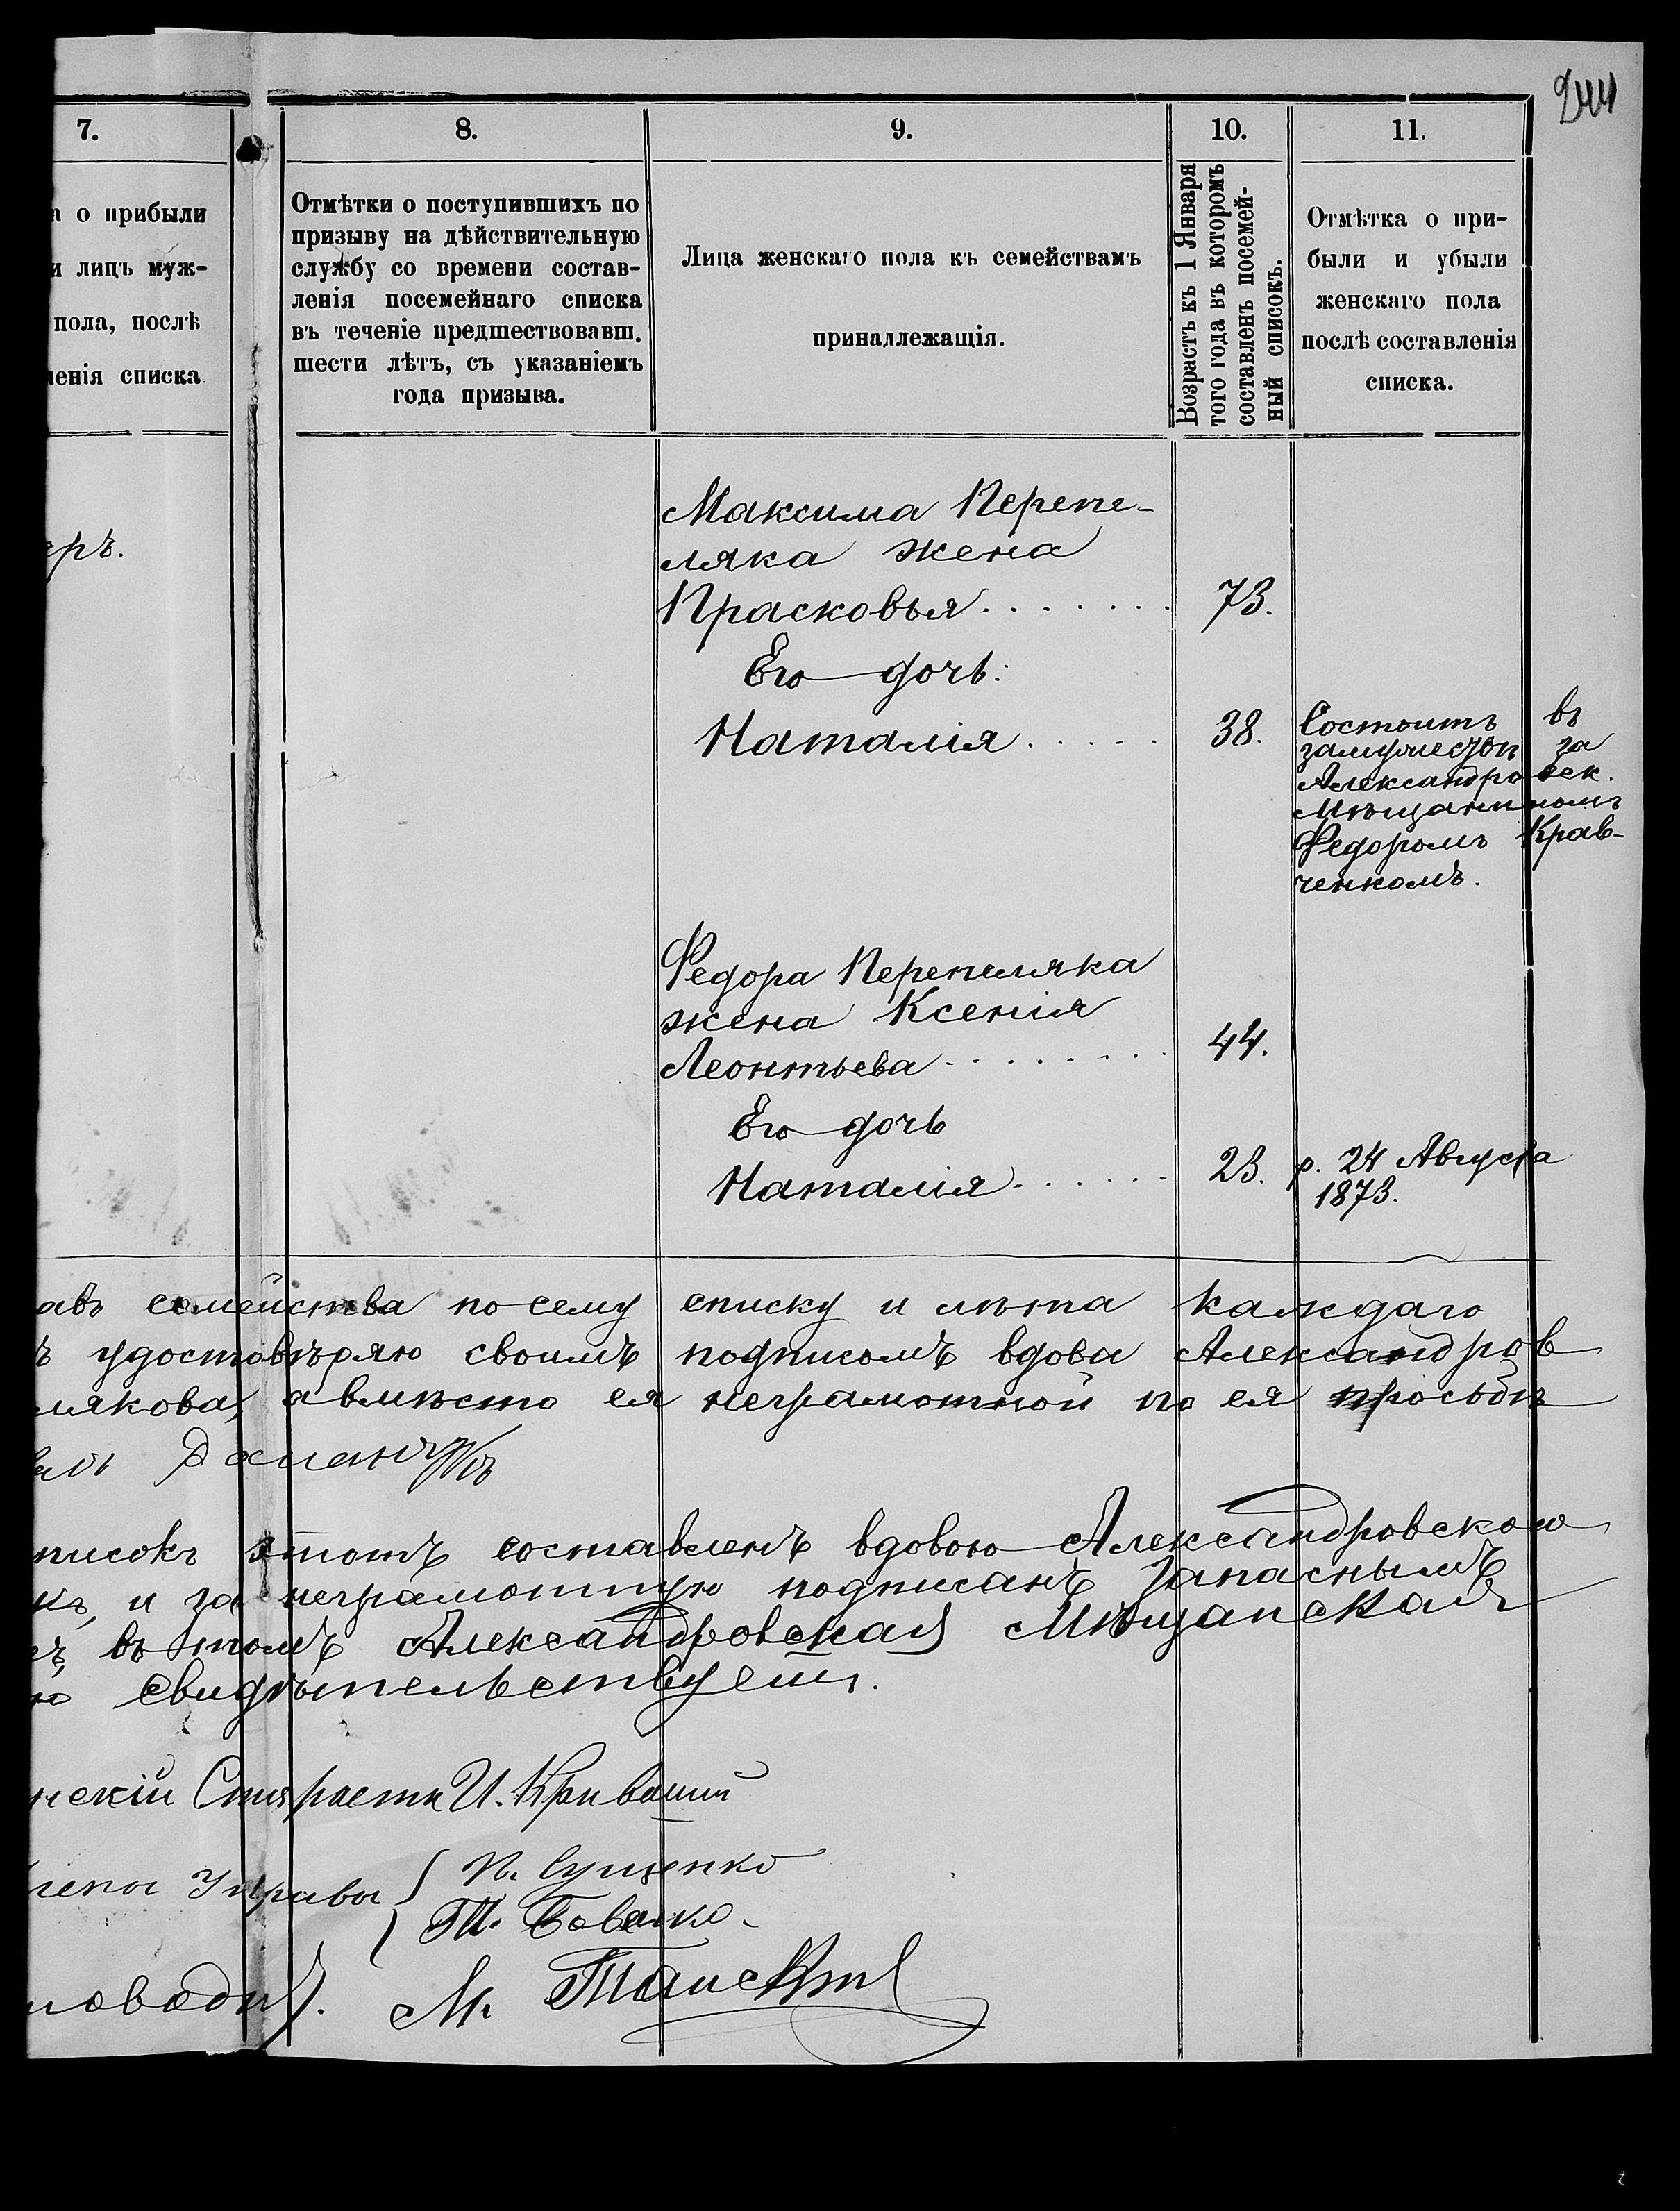 244
7.
8.
9.
10.
11.
а о прибыли
и лицъ муж-
пола, послѣ
ленія списка
Отмѣтки о поступившихъ по
призыву на дѣйствительную
службу со времени состав-
ленія посемейнаго списка
въ теченіе предшествовавш.
шести лѣтъ, съ указаніемъ
года призыва.
Лица женскаго пола къ семействамъ
принадлежащія.
Возрастъ къ 1 Января
того года въ которомъ
составленъ посемей-
ный списокъ.
Отмѣтка о при-
были и убыли
женскаго пола
послѣ составленія
списка.
еръ.
Максима Перепе-
ляка жена
Прасковья 73.
Его дочь:
Наталія 38.
Состоитъ въ
замужествѣ за
Александровск.
Мѣщаниномъ
Федоромъ Крав-
ченкомъ.
Федора Перепеляка
жена Ксенія
Леонтьева 44.
Его дочь
Наталія 23.
р. 24 Августа
1873.
авъ семейства по сему списку и лѣта каждаго
ъ удостовѣряю своимъ подписомъ вдова Александров
лякова, а вмѣсто ея неграмотной по ея просьбѣ
писокъ этотъ составленъ вдовою Александровскою
къ, и за неграмотную подписанъ запаснымъ
въ томъ Александровская Мѣщанская
ю свидѣтельствуетъ.
нскій Староста И.
лены Управы
П. Сущенко
оводи
М.